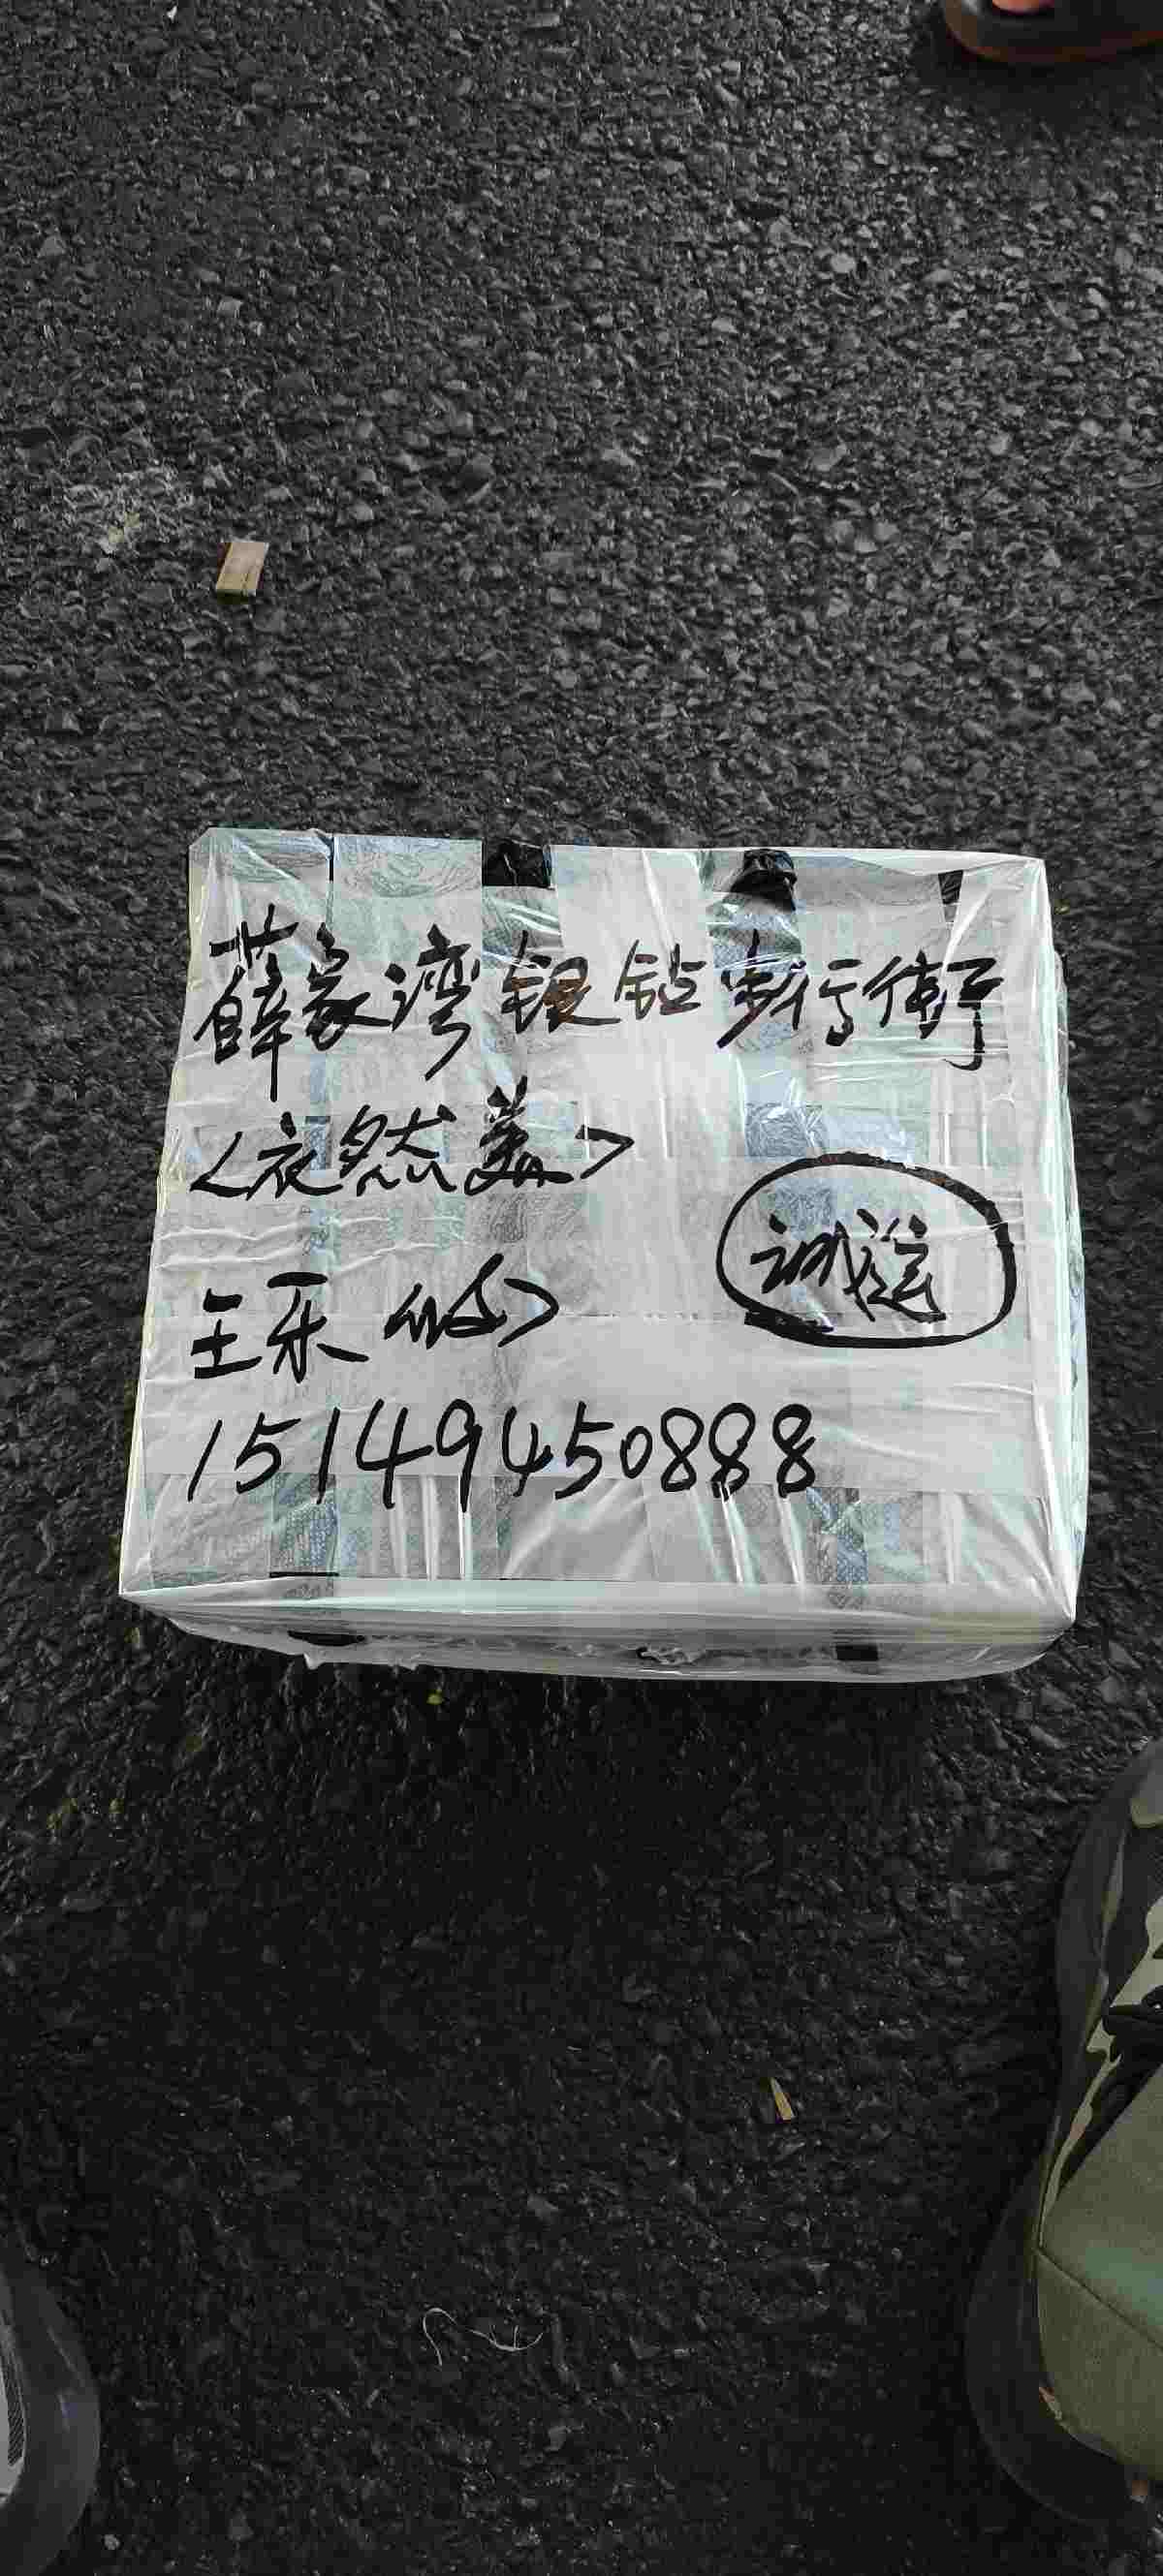 薛家湾银钻步行街
<衣然美>
王乐
诚送
15149450888